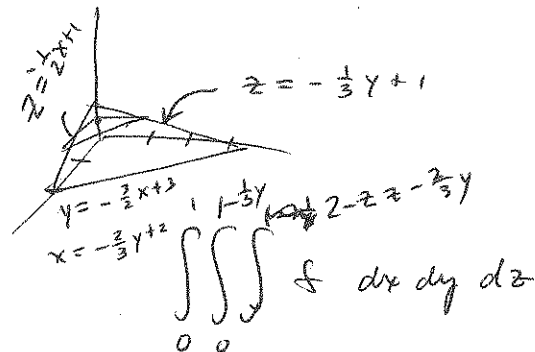 z = -½x+1
z = -⅓y+1
y = -3/2x+3
x = -⅔y+2
∫₀¹ ∫₀^{1-⅓y} ∫ ^{2-2z-⅔y} f dx dy dz